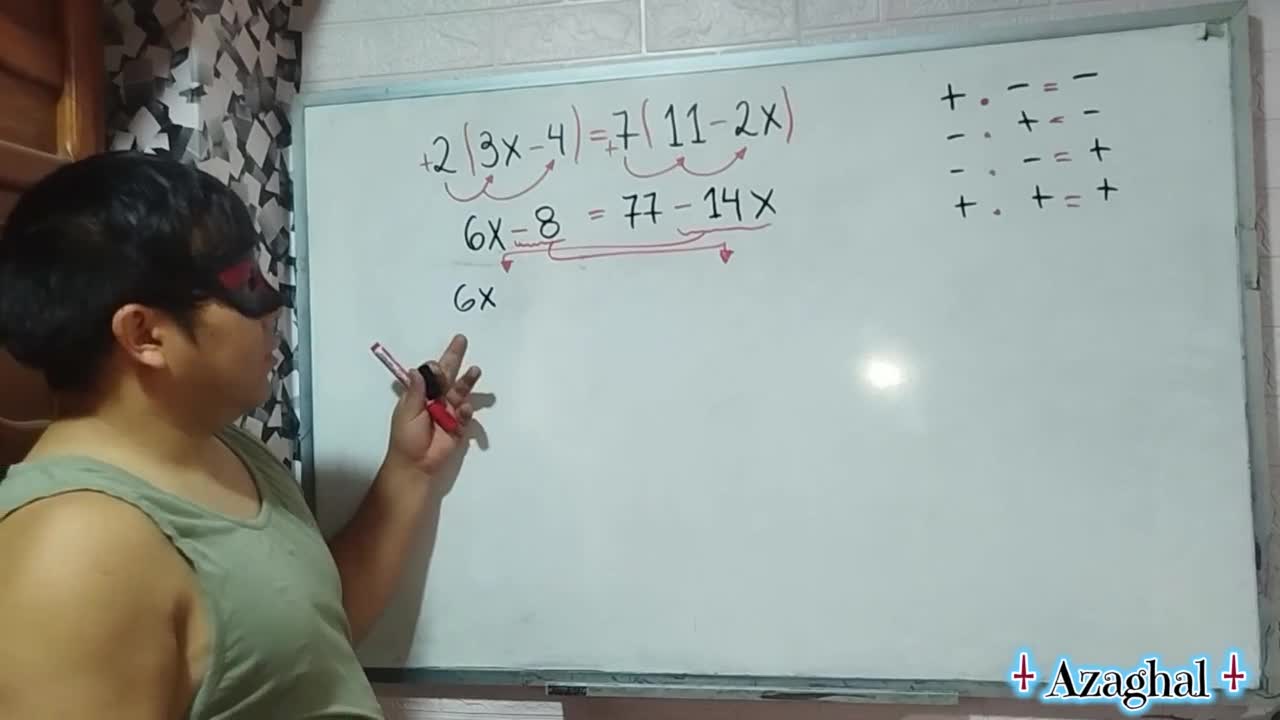 +2(3x-4)=+7(11-2x)
6x-8 = 77-14x
6x
+ . - = -
- . + = -
- . - = +
+ . + = +
Azaghal